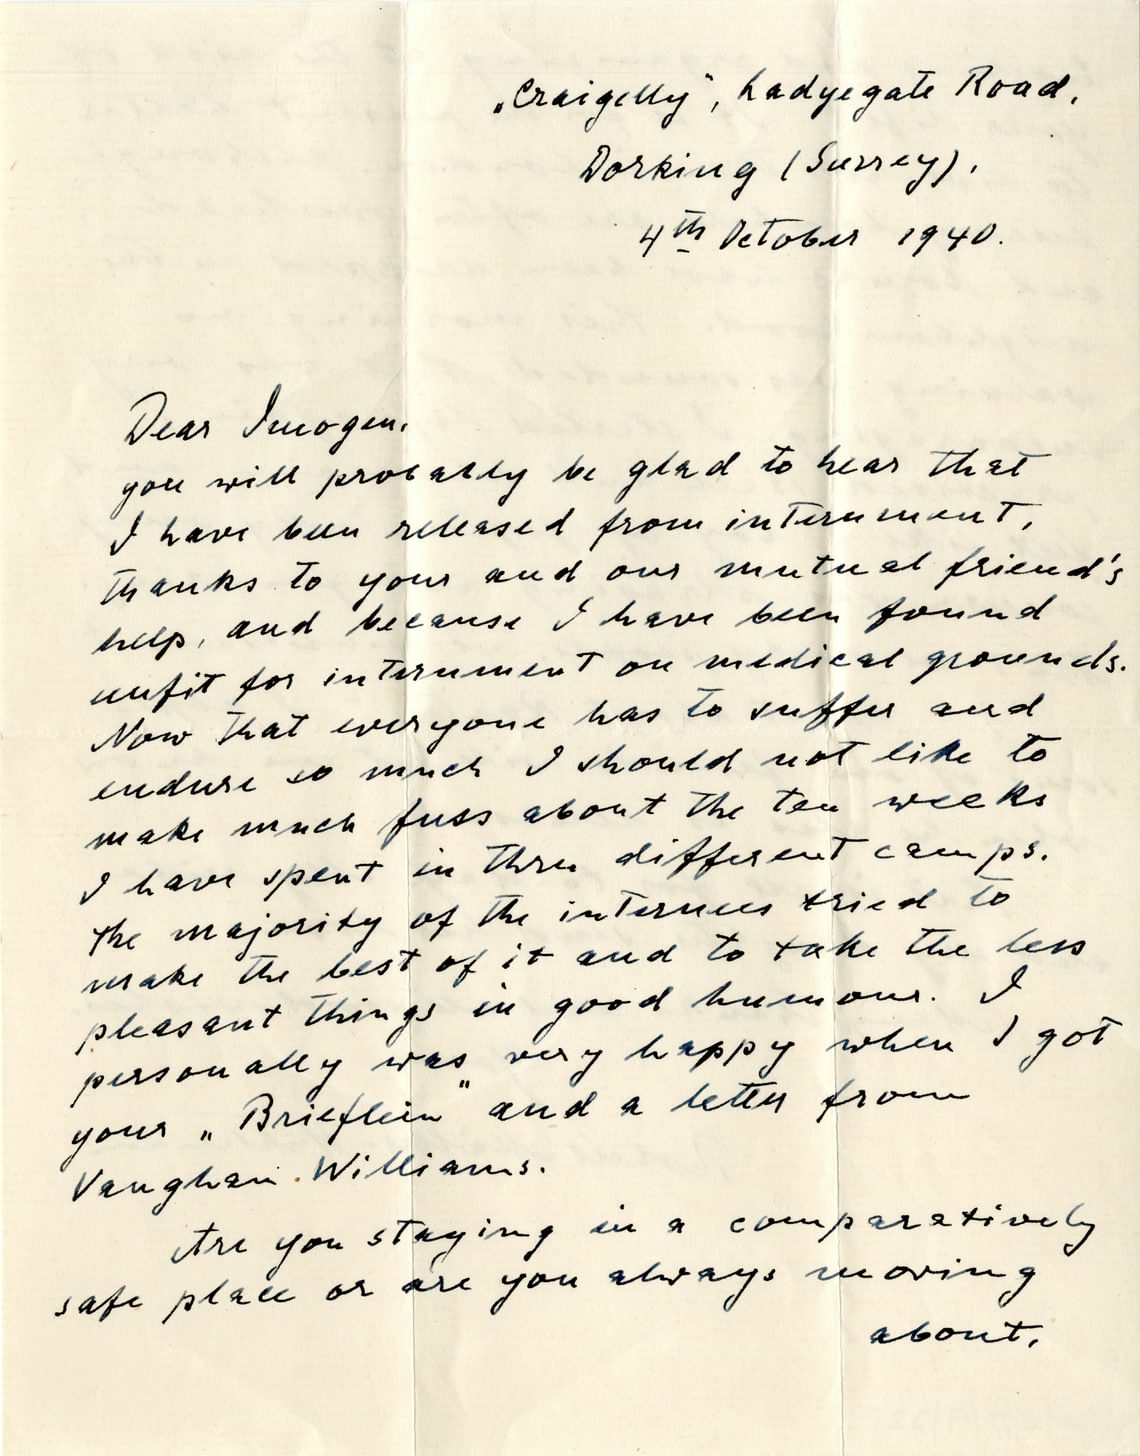 „Craigelly", Ladyegate Road,
Dorking (Surrey).
4th October 1940.
Dear Imogen,
you will probably be glad to hear that
I have been released from internment,
thanks to your and our mutual friend's
help, and because I have been found
unfit for internment on medical grounds.
Now that everyone has to suffer and
endure so much I should not like to
make much fuss about the ten weeks
I have spent in three different camps.
The majority of the internees tried to
make the best of it and to take the less
pleasant things in good humour. I
personally was very happy when I got
your „Brieflein" and a letter from
Vaughan Williams.
Are you staying in a comparatively
safe place or are you always moving
about,